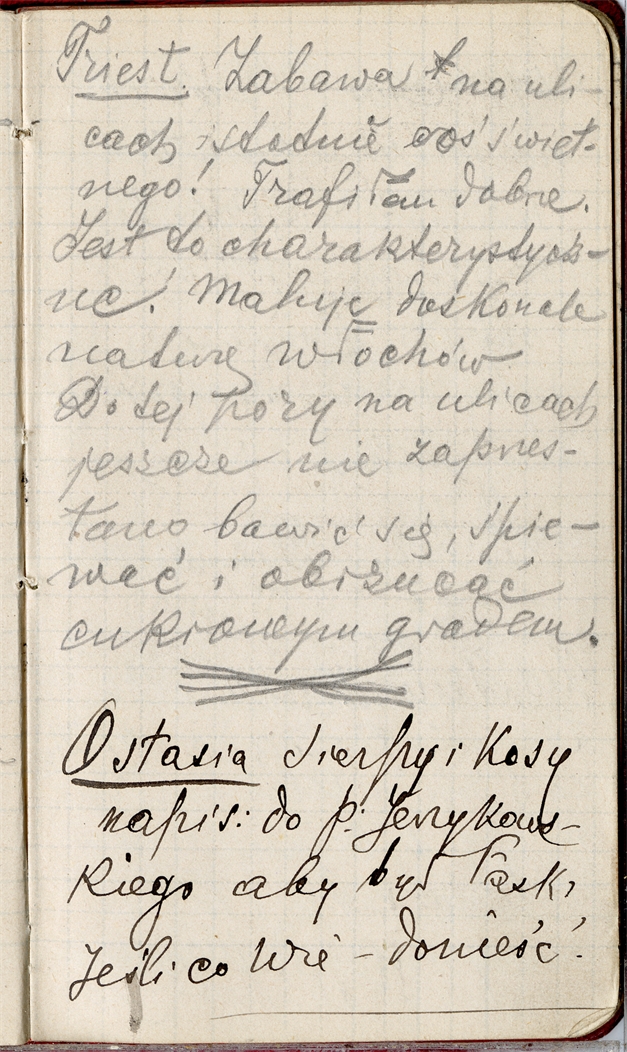 Triest. Zabawa na uli-
cach istotnie coś świet-
nego! Trafiłam dobrze.
Jest to charakterystycz-
ne! Maluje doskonale
naturę Włochów
Do tej pory na ulicach
jeszcze nie zaprzes-
tano bawić się, śpie-
wać i obrzucać
cukrowym gradem.
Ostasia Sierpy i Kosy
napis: do p. Jerzykows-
kiego aby był łask.
Jeśli co wie - donieść.